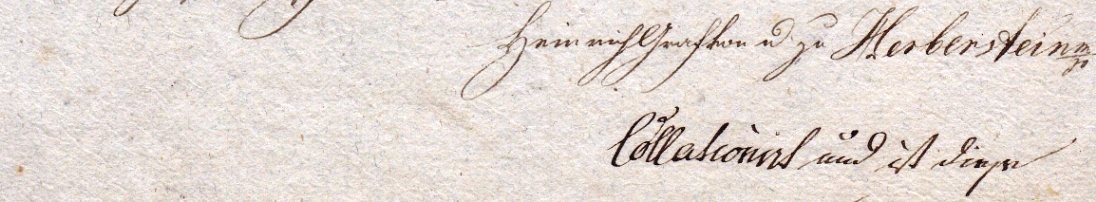 Heinrich Graf von u zu Herberstein mp
Collationirt und ist diese